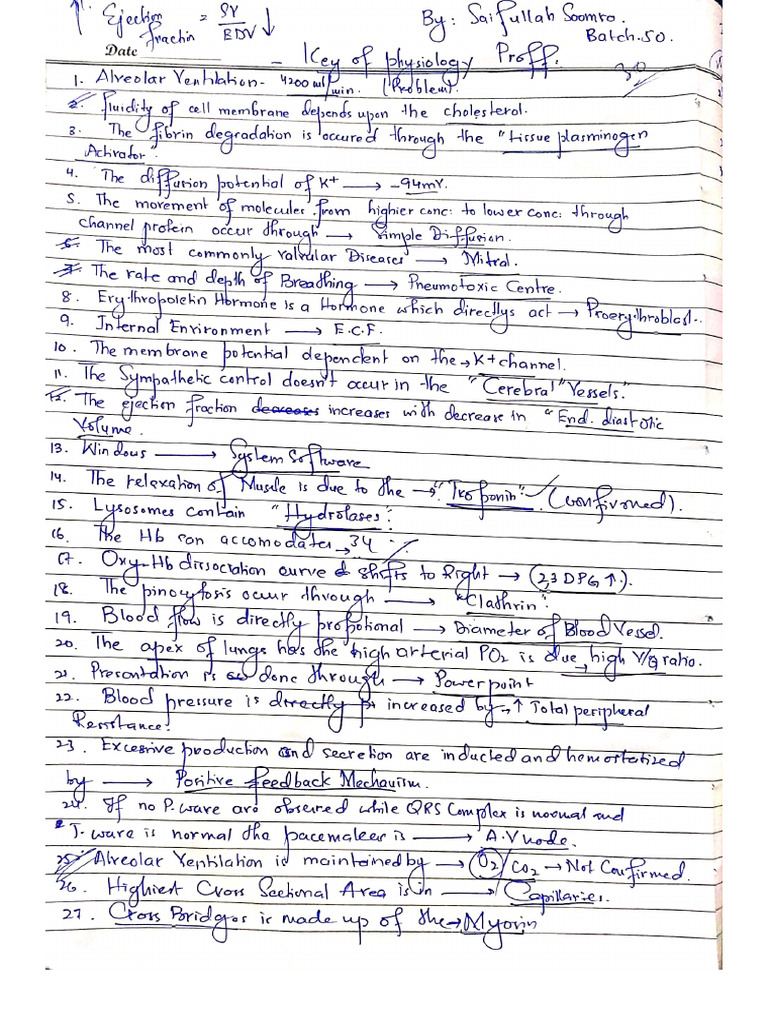 ↑ Ejection fractin = SV / EDV ↓
By: Saifullah Soomro.
Batch.50.
Date
Key of physiology Proff.
30
1. Alveolar Ventilation- 4200 ml/min. (Problem).
2. fluidity of cell membrane depends upon the cholesterol.
3. The fibrin degradation is occured through the "tissue plasminogen
Activator.
4. The diffusion potential of K+ → -94mv.
5. The movement of molecules from highier conc: to lower conc: through
channel protein occur through → Simple Diffusion.
6. The most commonly valvular Diseases → Mitral.
7. The rate and depth of Breathing → Pneumotoxic Centre.
8. Erythropoietin Hormone is a Hormone which directlys act → Proerythroblast..
9. Internal Environment → E.C.F.
10. The membrane potential dependent on the → K+ channel.
11. The Sympathetic control doesn't occur in the "Cerebral" Vessels."
12. The ejection fraction decreases increases with decrease in "End. diastotic
Volume.
13. Windows → System Software
14. The relaxation of Muscle is due to the → "Troponin" (confirmed).
15. Lysosomes contain "Hydrolases".
16. The Hb can accomodates → 34
17. Oxy-Hb dissociation curve shifts to Right → (2,3 DPG ↑.).
18. The pinocytosis occur through → "Clathrin".
19. Blood flow is directly proptional → Diameter of Blood Vessel.
20. The apex of lungs has the high arterial PO2 is due, high V/Q ratio.
21. Presentation is done through → Powerpoint
22. Blood pressure is directly increased by → ↑ Total peripheral
Resistance.
23. Excessive production and secretion are inducted and hemostatized
by → Positive feedback Mechanism.
24. If no P.wave are observed while QRS Complex is normal and
T.wave is normal the pacemaker is → A.V node.
25. Alveolar Ventilation is maintained by → O2/CO2 → Not Confirmed.
26. Highiest Cross Sectional Area is in → Capillaries.
27. Cross Bridges is made up of the → Myosin